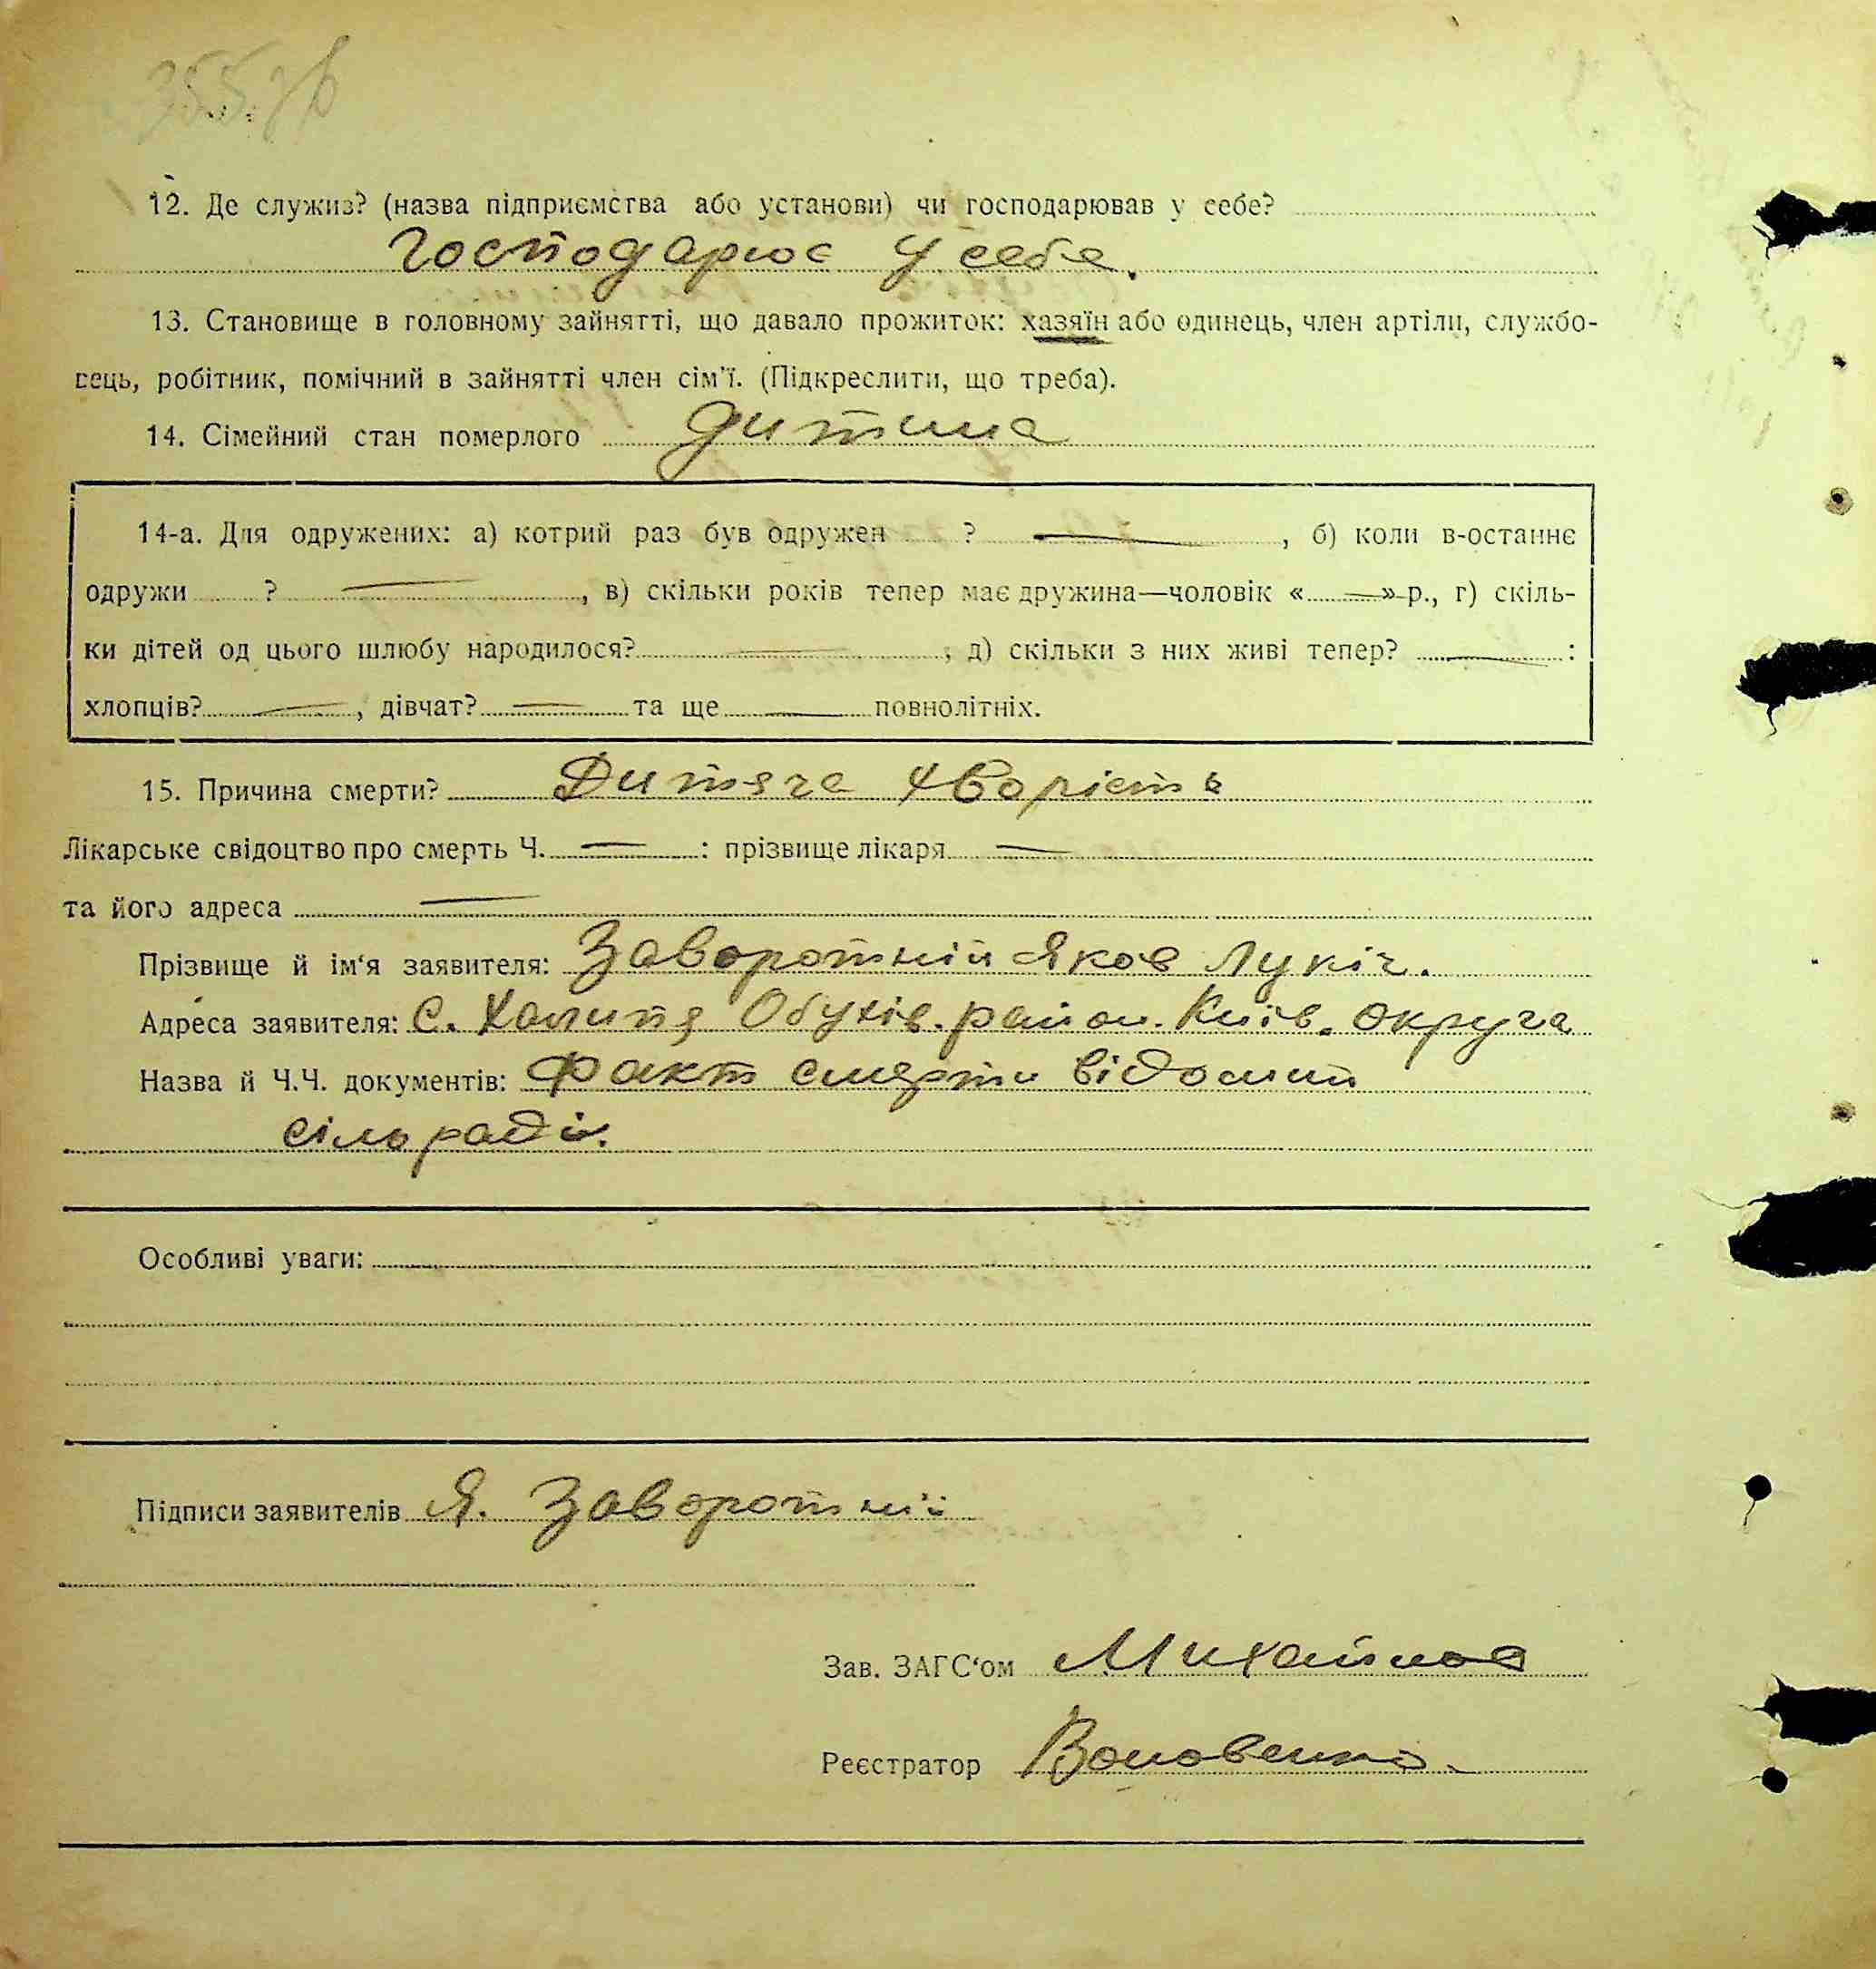 12. Де служив? (назва підприємства або установи) чи господарював у себе?
Господарює у себе.
13. Становище в головному зайнятті, що давало прожиток: хазяїн або одинець, член артіли, службо-
вець, робітник, помічний в зайнятті член сім'ї. (Підкреслити, що треба).
14. Сімейний стан померлого дитина
14-а. Для одружених: а) котрий раз був одружен ? —, б) коли в-останнє
одружи ? —, в) скільки років тепер має дружина—чоловік «—» р., г) скіль-
ки дітей од цього шлюбу народилося? —; д) скільки з них живі тепер? —:
хлопців? —, дівчат? — та ще — повнолітніх.
15. Причина смерти? Дитяча хворість
Лікарське свідоцтво про смерть Ч. —: прізвище лікаря —
та його адреса —
Прізвище й ім'я заявителя: Заворотній Яков Лукіч.
Адреса заявителя: С. Халипʼя Обухів. район. Київ. округа
Назва й Ч.Ч. документів: Факт смерти відомий
сільраді.
Особливі уваги:
Підписи заявителів Я. Заворотній
Зав. ЗАГС'ом Михайлов
Реєстратор Воловенко.